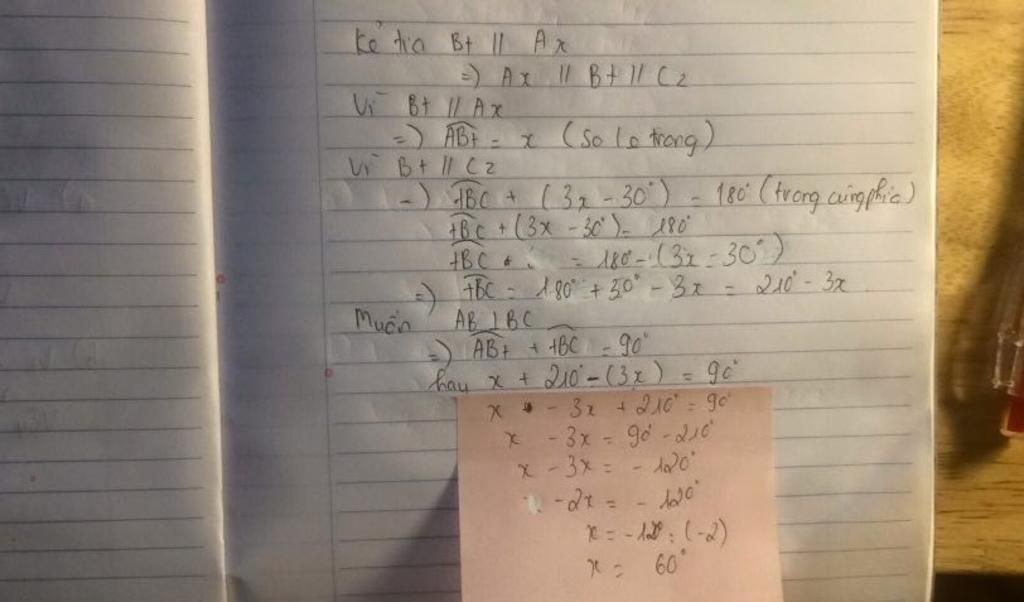 Kẻ tia Bt // Ax
=) Ax // Bt // Cz
Vì Bt // Ax
=) ABt = x (So le trong)
Vì Bt // Cz
=) tBC + (3x - 30°) = 180° (trong cùng phía)
tBC + (3x - 30°) = 180°
tBC = 180° - (3x - 30°)
=) tBC = 180° + 30° - 3x = 210° - 3x
Muốn AB ⊥ BC
=) ABt + tBC = 90°
hay x + 210° - (3x) = 90°
x - 3x + 210° = 90°
x - 3x = 90° - 210°
x - 3x = - 120°
-2x = - 120°
x = -120° : (-2)
x = 60°